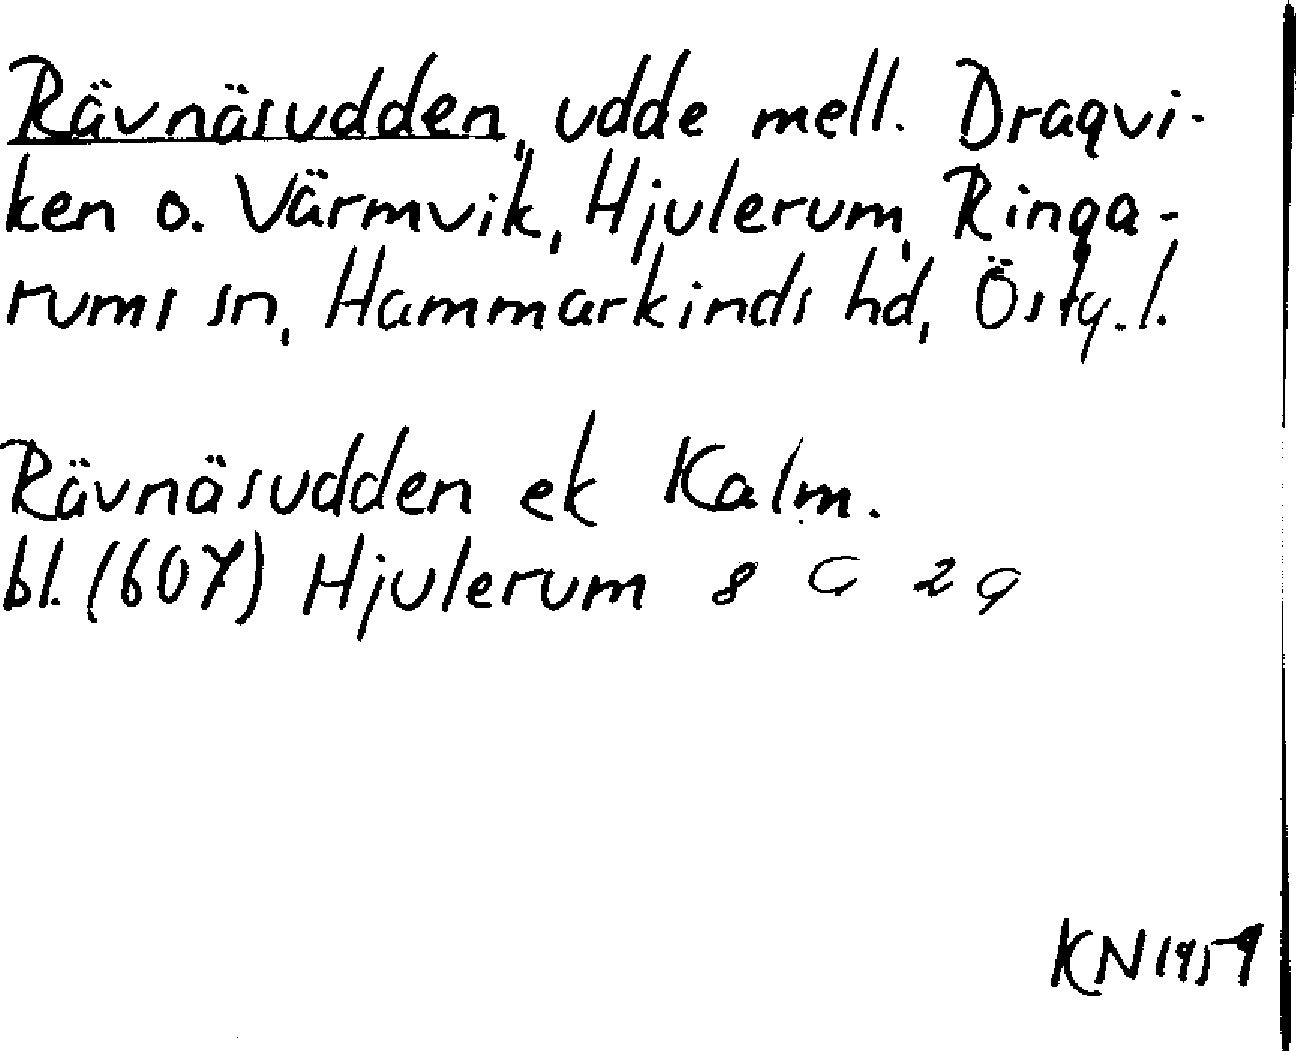 Rävnäsudden, udde mell. Dragvi-
ken o. Värmvik, Hjulerum, Ringa-
rums sn, Hammarkinds hd, Östg. l.
Rävnäsudden ek Kalm.
bl. (607) Hjulerum 8 G 2 g
KN 1959